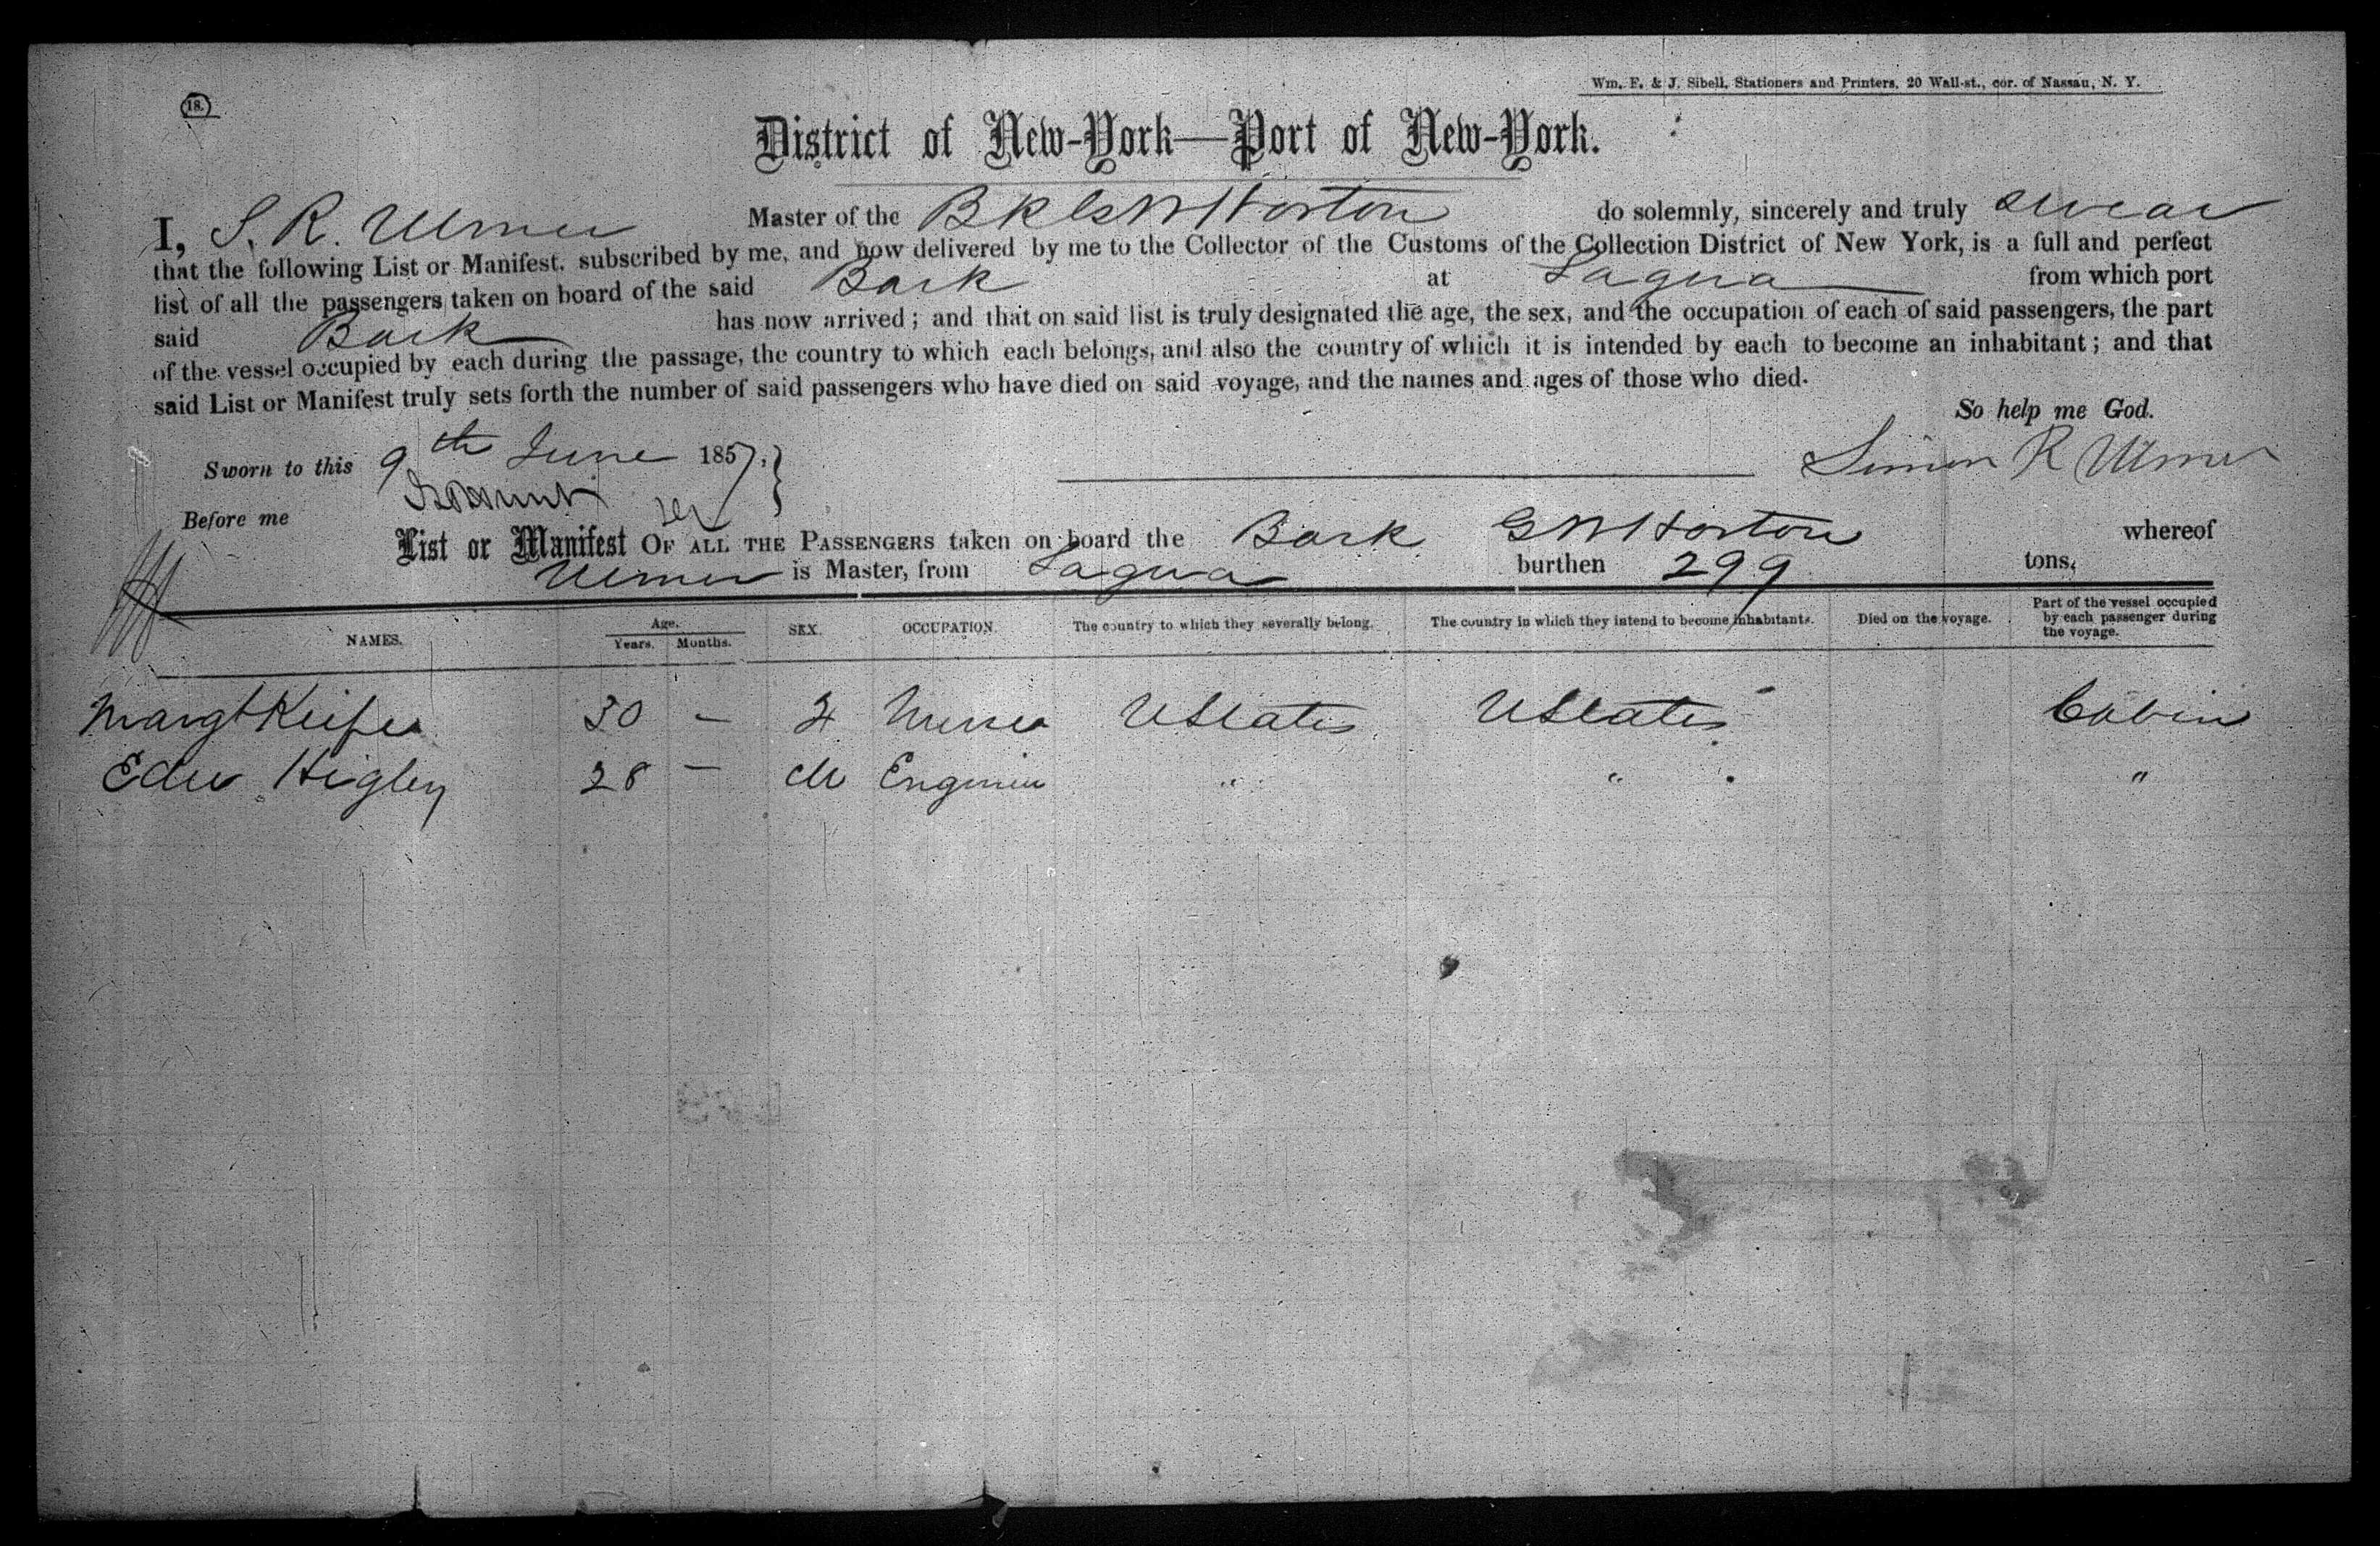 Wm. E. & J. Sibell, Stationers and Printers, 20 Wall-st., cor. of Nassau, N. Y.
18.
District of New-York—Port of New-York.
I, S. R. Ulmer Master of the BK G W Horton do solemnly, sincerely and truly swear
that the following List or Manifest, subscribed by me, and now delivered by me to the Collector of the Customs of the Collection District of New York, is a full and perfect
list of all the passengers taken on board of the said Bark at Sagua from which port
said Bark has now arrived; and that on said list is truly designated the age, the sex, and the occupation of each of said passengers, the part
of the vessel occupied by each during the passage, the country to which each belongs, and also the country of which it is intended by each to become an inhabitant; and that
said List or Manifest truly sets forth the number of said passengers who have died on said voyage, and the names and ages of those who died.
So help me God.
Sworn to this 9th June 1857, Simon R Ulmer
Before me
List or Manifest OF ALL THE PASSENGERS taken on board the Bark G W Horton whereof
Ulmer is Master, from Sagua burthen 299 tons.
NAMES. Age. Years. Months. SEX. OCCUPATION. The country to which they severally belong. The country in which they intend to become inhabitants. Died on the voyage. Part of the vessel occupied by each passenger during the voyage.
Margt Keifer 30 — F Nurse UStates UStates Cabin
Edw Higley 28 — M Engineer " " "